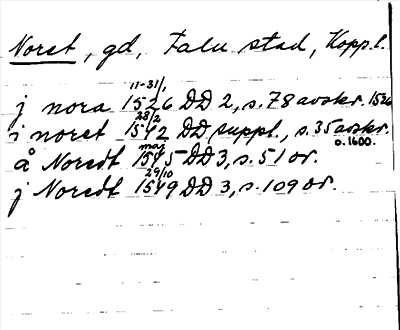 Noret, gd, Falu stad, Koppl.
11-31/1
j nora 1526 DD 2, s. 78 avskr. 1536
28/2
i noret 1542 DD suppl., s. 35 avskr.
o. 1600.
maj
å Noredt 1545 DD 3, s. 51 or.
29/10
j Noredt 1549 DD 3, s. 109 or.